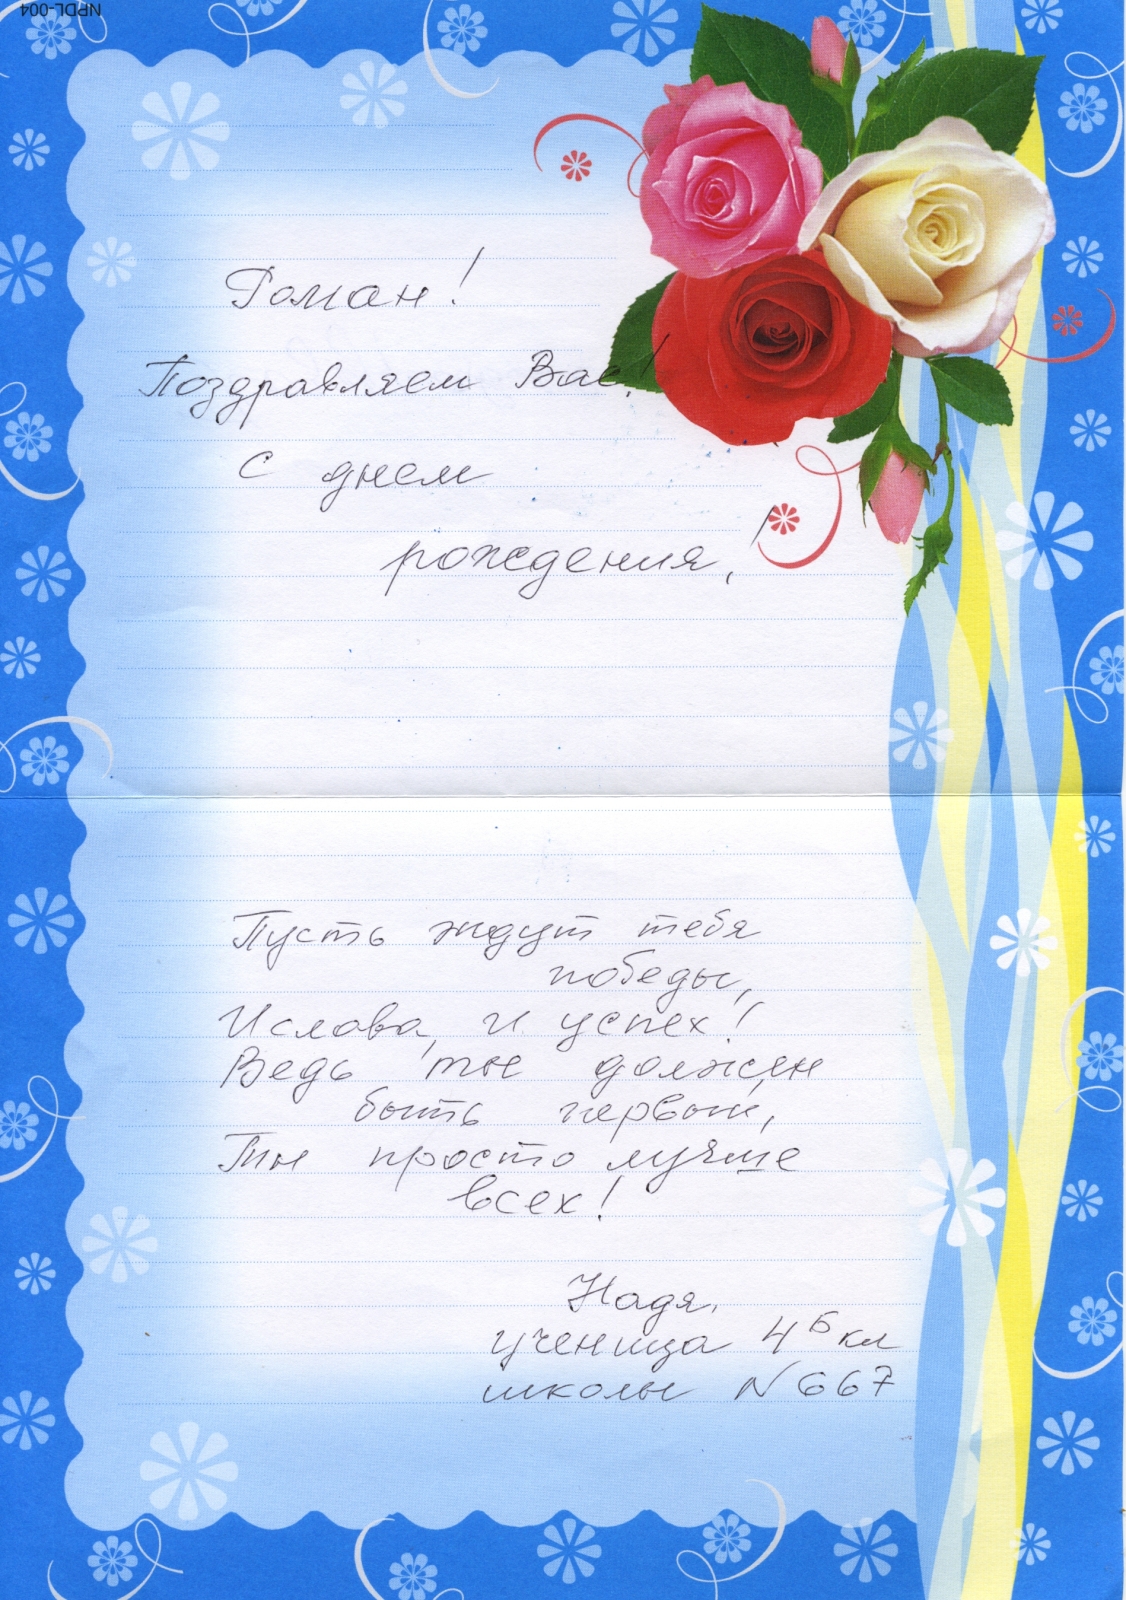 NPDL-004
Роман!
Поздравляем Вас!
с днем
рождения,!
Пусть ждут тебя
победы,
И слава, и успех!
Ведь ты должен
быть первый,
Ты просто лучше
всех!
Надя,
ученица 4Б кл
школы N 667